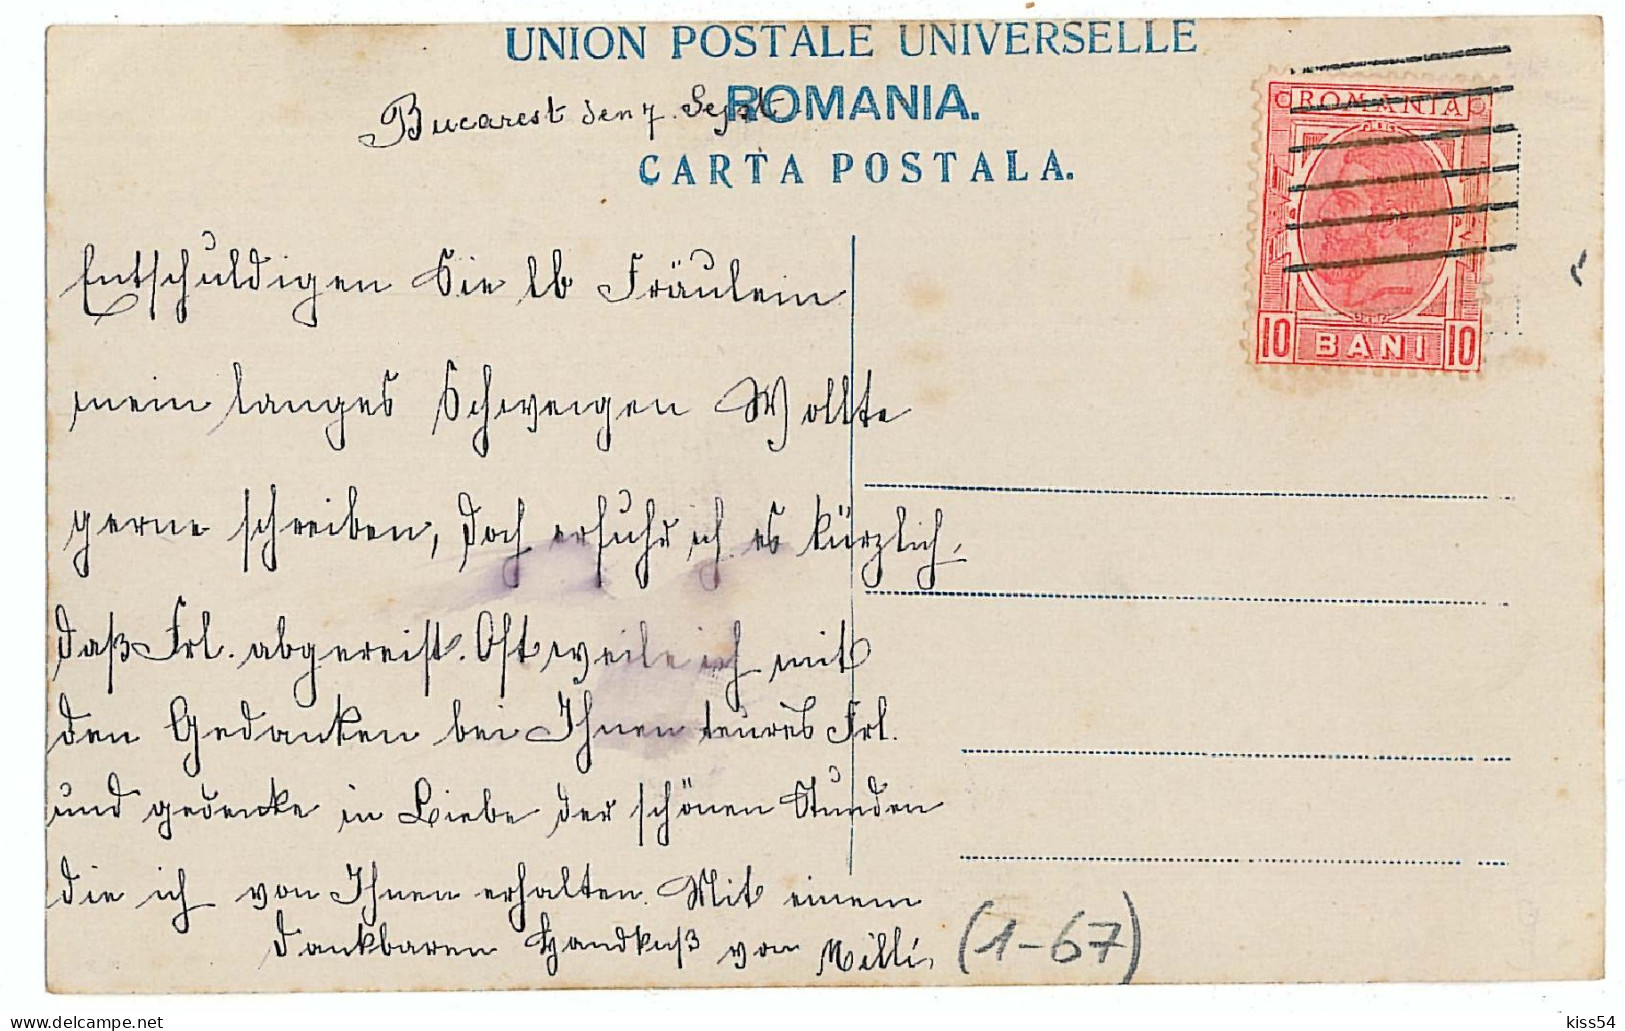 UNION POSTALE UNIVERSELLE
ROMANIA.
Bucarest den 7. Sept.
CARTA POSTALA.
ROMANIA
10 BANI 10
Entschuldigen Sie lb Fräulein
mein langes Schweigen Wollte
gerne schreiben, doch erfuhr ich es kürzlich,
daß Frl. abgereist. Oft weile ich mit
den Gedanken bei Ihnen teures Frl.
und gedenke in Liebe der schönen Stunden
die ich von Ihnen erhalten. Mit einem
dankbaren Handkuß von Milli,
(1-67)
kiss54